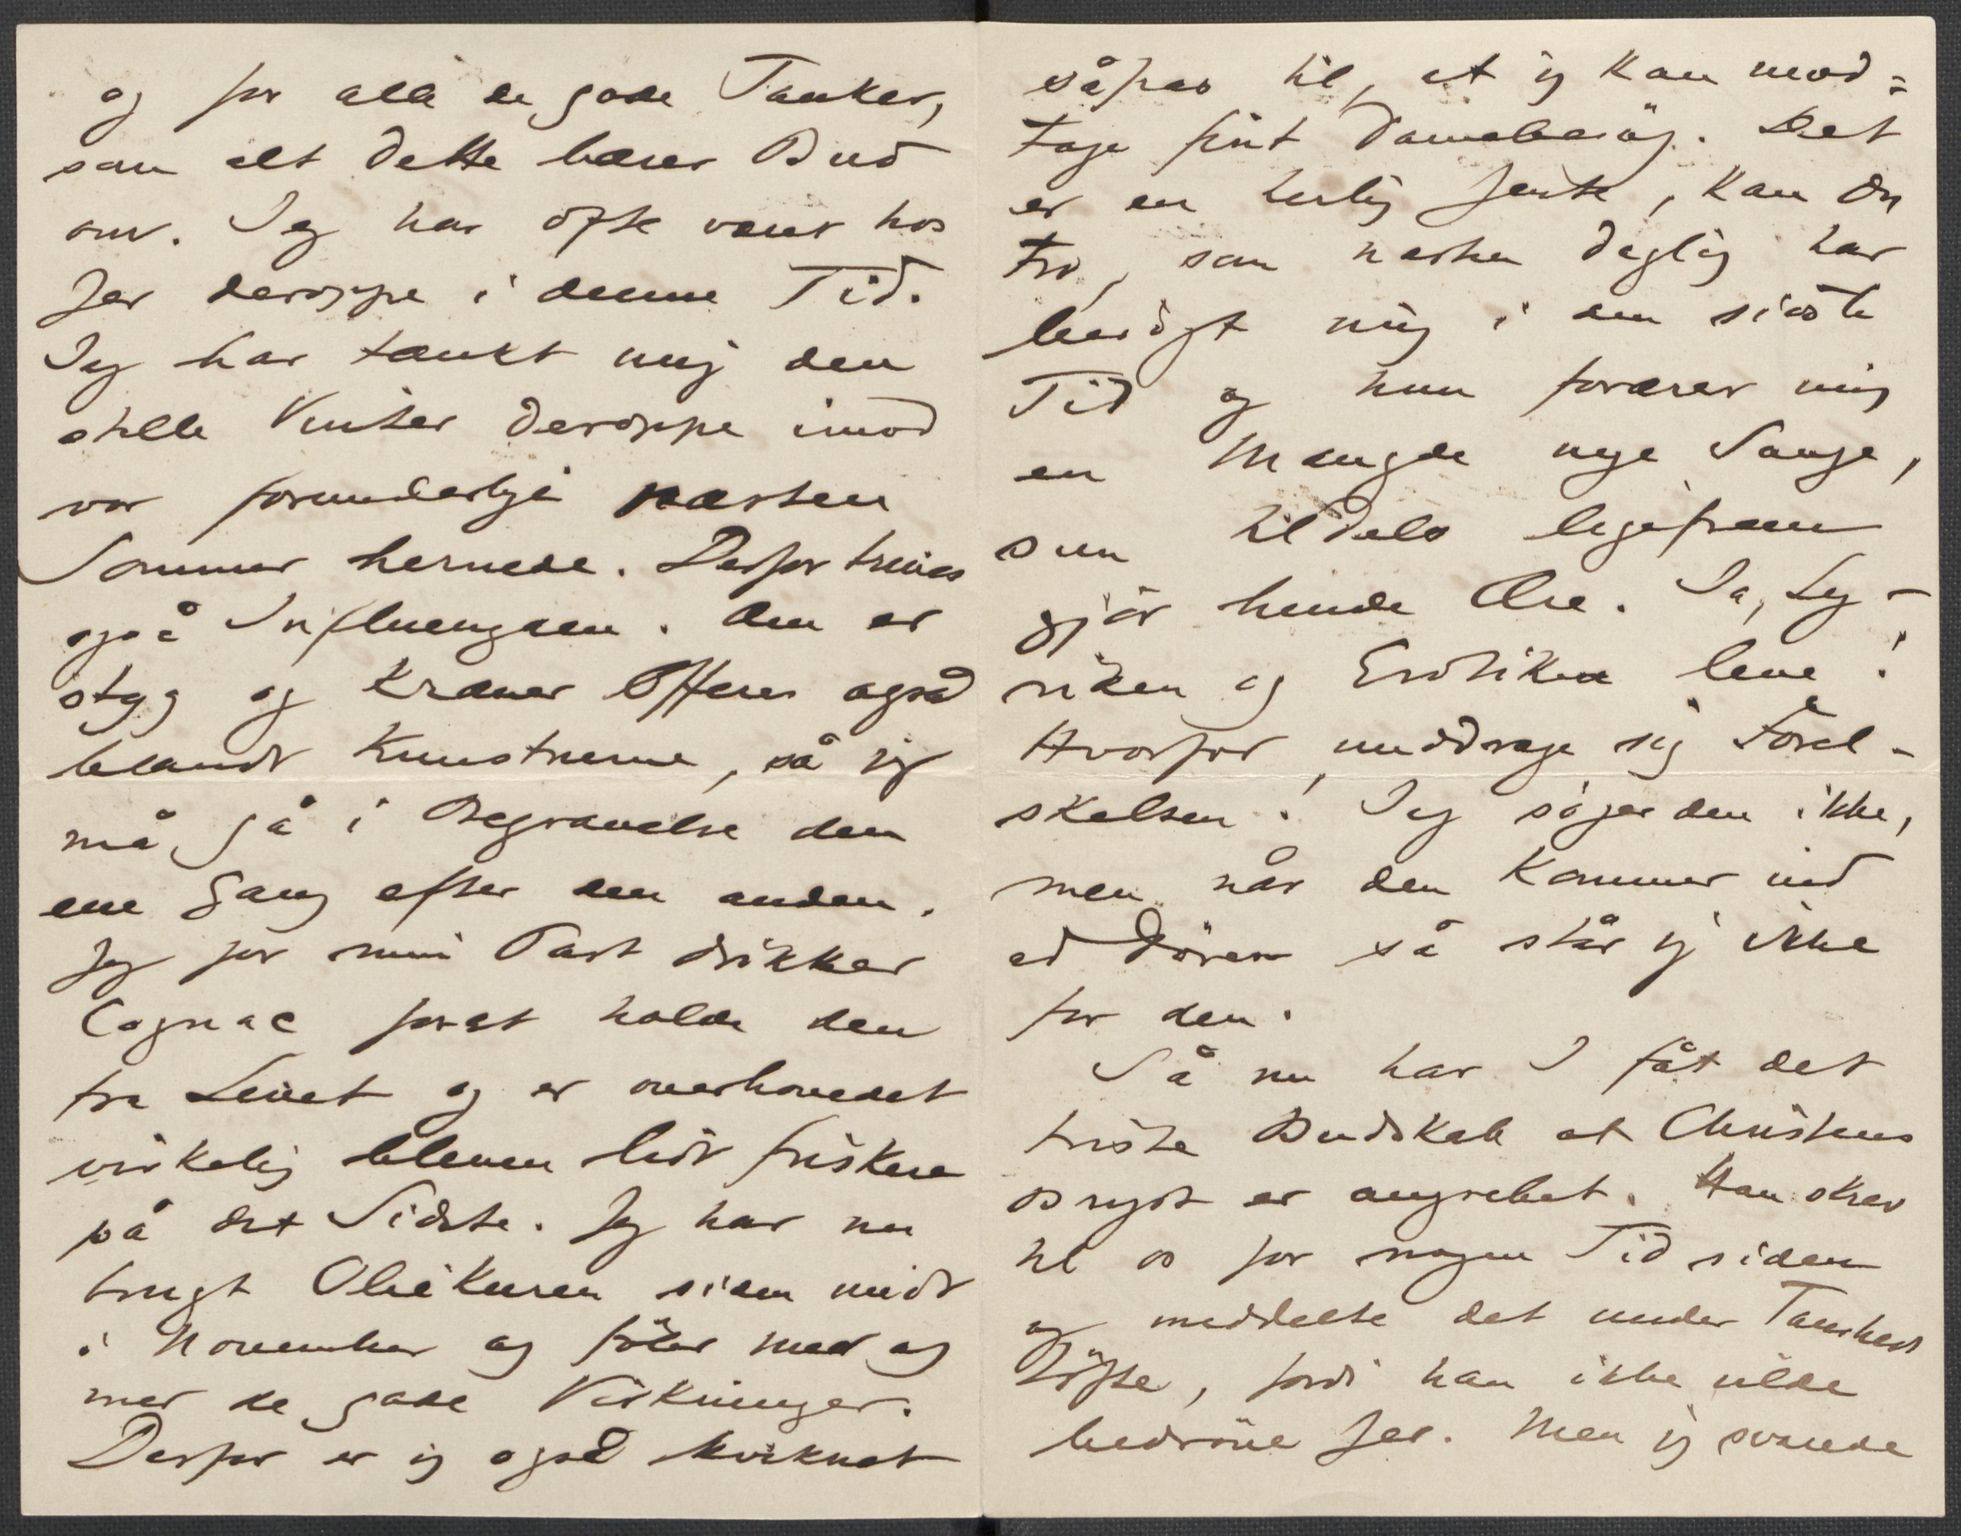 og for alle de gode Tanker,
som alt dette bærer Bud
om. Jeg har ofte været hos
Jer deroppe i denne Tid.
Jeg har tænkt mig den
stille Vinter deroppe imod
vor forunderlige næsten
Sommer hernede. Derfor trives
også Influenzaen. Den er
styg og kræver Offere også
blandt Kunstnerne, så jeg
må gå i Begravelse den
ene Gang efter den anden.
Jeg for min Part drikker
Cognac forat holde den
fra Livet og er overhovedet
virkelig bleven lidt friskere
på det Sidste. Jeg har nu
brugt Oliekuren siden midt
i November og føler mer og
mer de gode Virkninger.
Derfor er jeg også kviknet
såpas til, at jeg kan mod=
tage fint Damebesøg. Det
er en herlig Jente, kan du
tro, som næsten daglig har
besøgt mig i den sidste
Tid og hun forærer mig
en Mængde nye Sange,
som tildels ligefrem
gjør hende Ære. Ja, Ly-
riken og Erotiken leve!
Hvorfor unddrage sig Forel-
skelsen! Jeg søger den ikke,
men når den kommer ind
ad Døren så står jeg ikke
for den.
Så nu har I fåt det
triste Budskab at Christens
Bryst er angrebet. Han skrev
til os for nogen Tid siden
og meddelte det under Tausheds
Løfte, fordi han ikke vilde
bedrøve Jer. Men jeg svarede